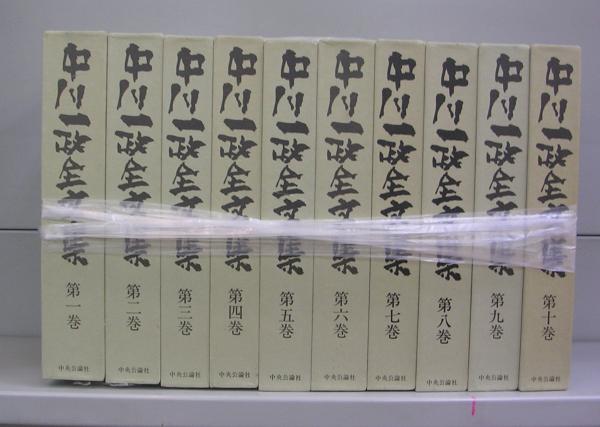 中川一政全文集
第一巻
中央公論社
中川一政全文集
第二巻
中央公論社
中川一政全文集
第三巻
中央公論社
中川一政全文集
第四巻
中央公論社
中川一政全文集
第五巻
中央公論社
中川一政全文集
第六巻
中央公論社
中川一政全文集
第七巻
中央公論社
中川一政全文集
第八巻
中央公論社
中川一政全文集
第九巻
中央公論社
中川一政全文集
第十巻
中央公論社